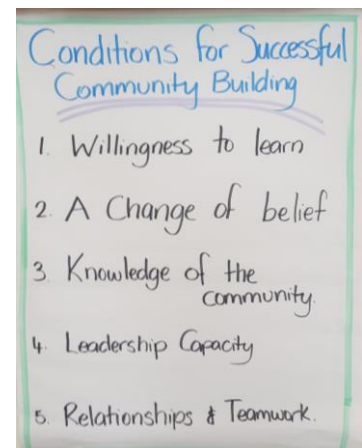 Conditions for Successful
Community Building
1. Willingness to learn
2. A Change of belief
3. Knowledge of the
community.
4. Leadership Capacity
5. Relationships & Teamwork.